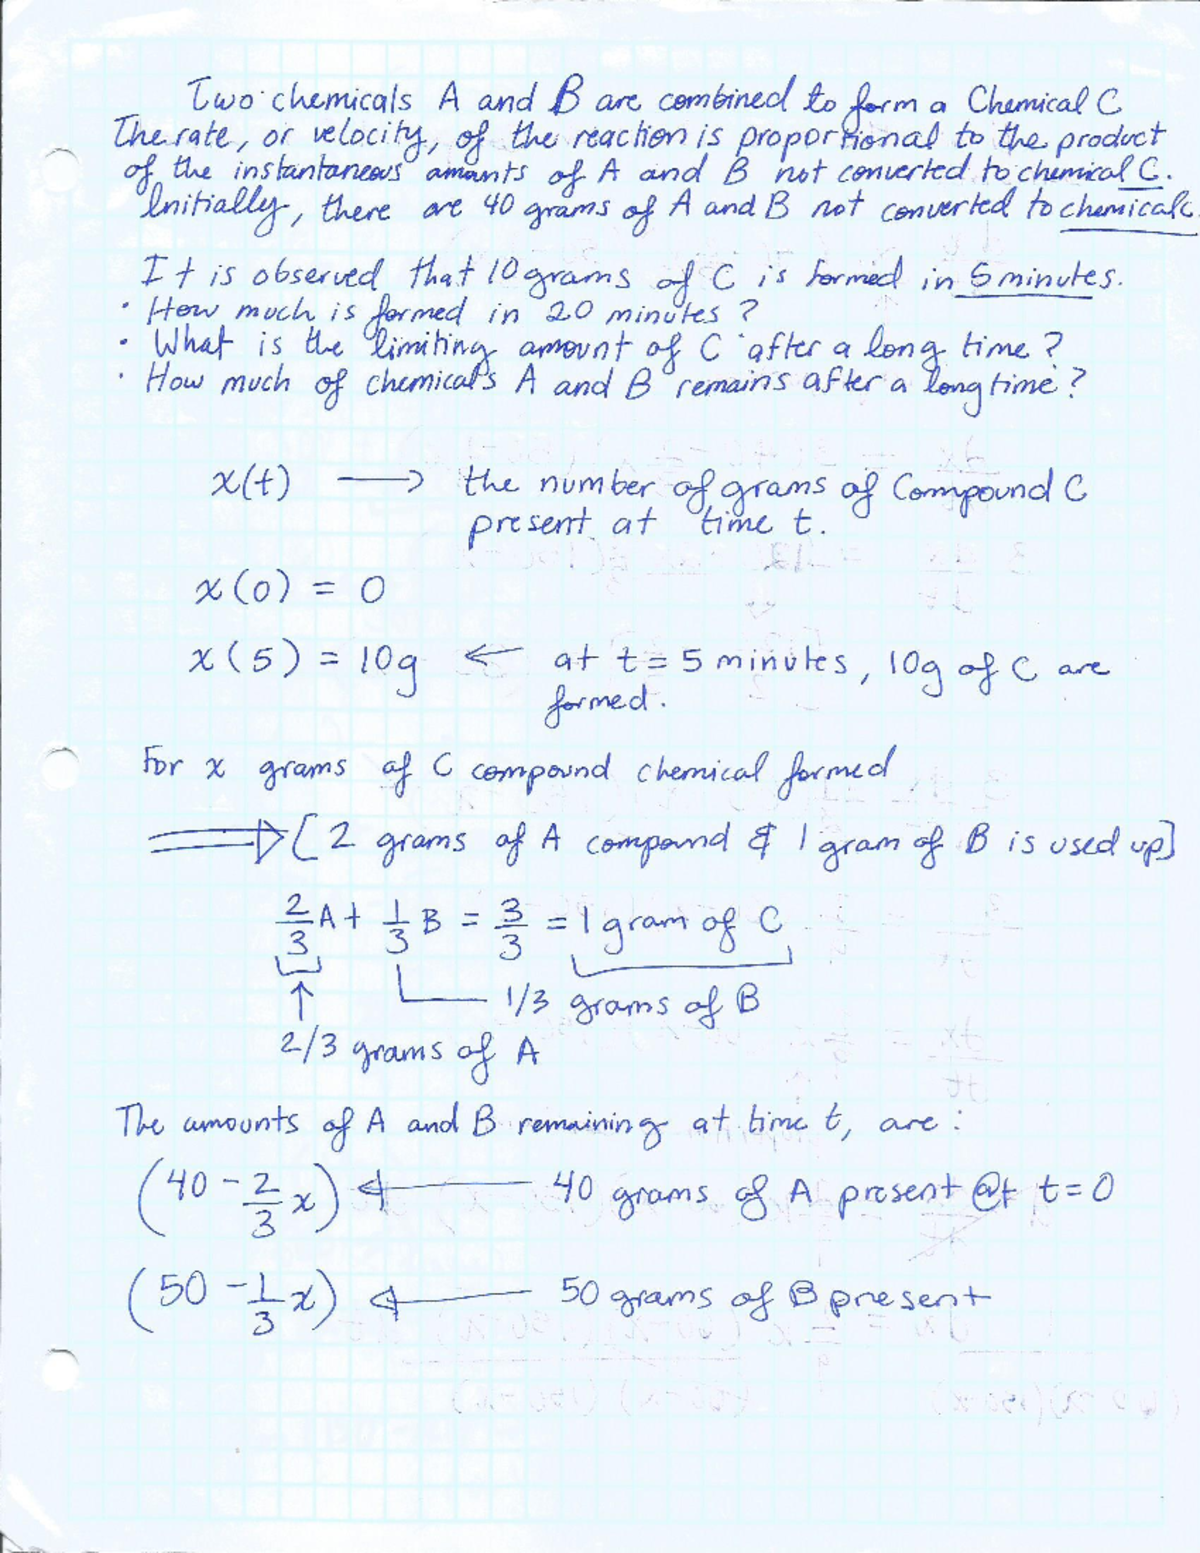 Two chemicals A and B are combined to form a Chemical C
The rate, or velocity, of the reaction is proportional to the product
of the instantaneous amounts of A and B not converted to chemical C.
Initially, there are 40 grams of A and B not converted to chemical C.
It is observed that 10 grams of C is formed in 5 minutes.
• How much is formed in 20 minutes?
• What is the limiting amount of C after a long time?
• How much of chemicals A and B remains after a long time?
x(t) → the number of grams of Compound C
present at time t.
x(0) = 0
x(5) = 10g ← at t = 5 minutes, 10g of C are
formed.
For x grams of C compound chemical formed
⇒ [2 grams of A compound & 1 gram of B is used up]
2/3 A + 1/3 B = 3/3 = 1 gram of C
↑ 1/3 grams of B
2/3 grams of A
The amounts of A and B remaining at time t, are:
(40 - 2/3 x) ← 40 grams of A present @t t=0
(50 - 1/3 x) ← 50 grams of B present